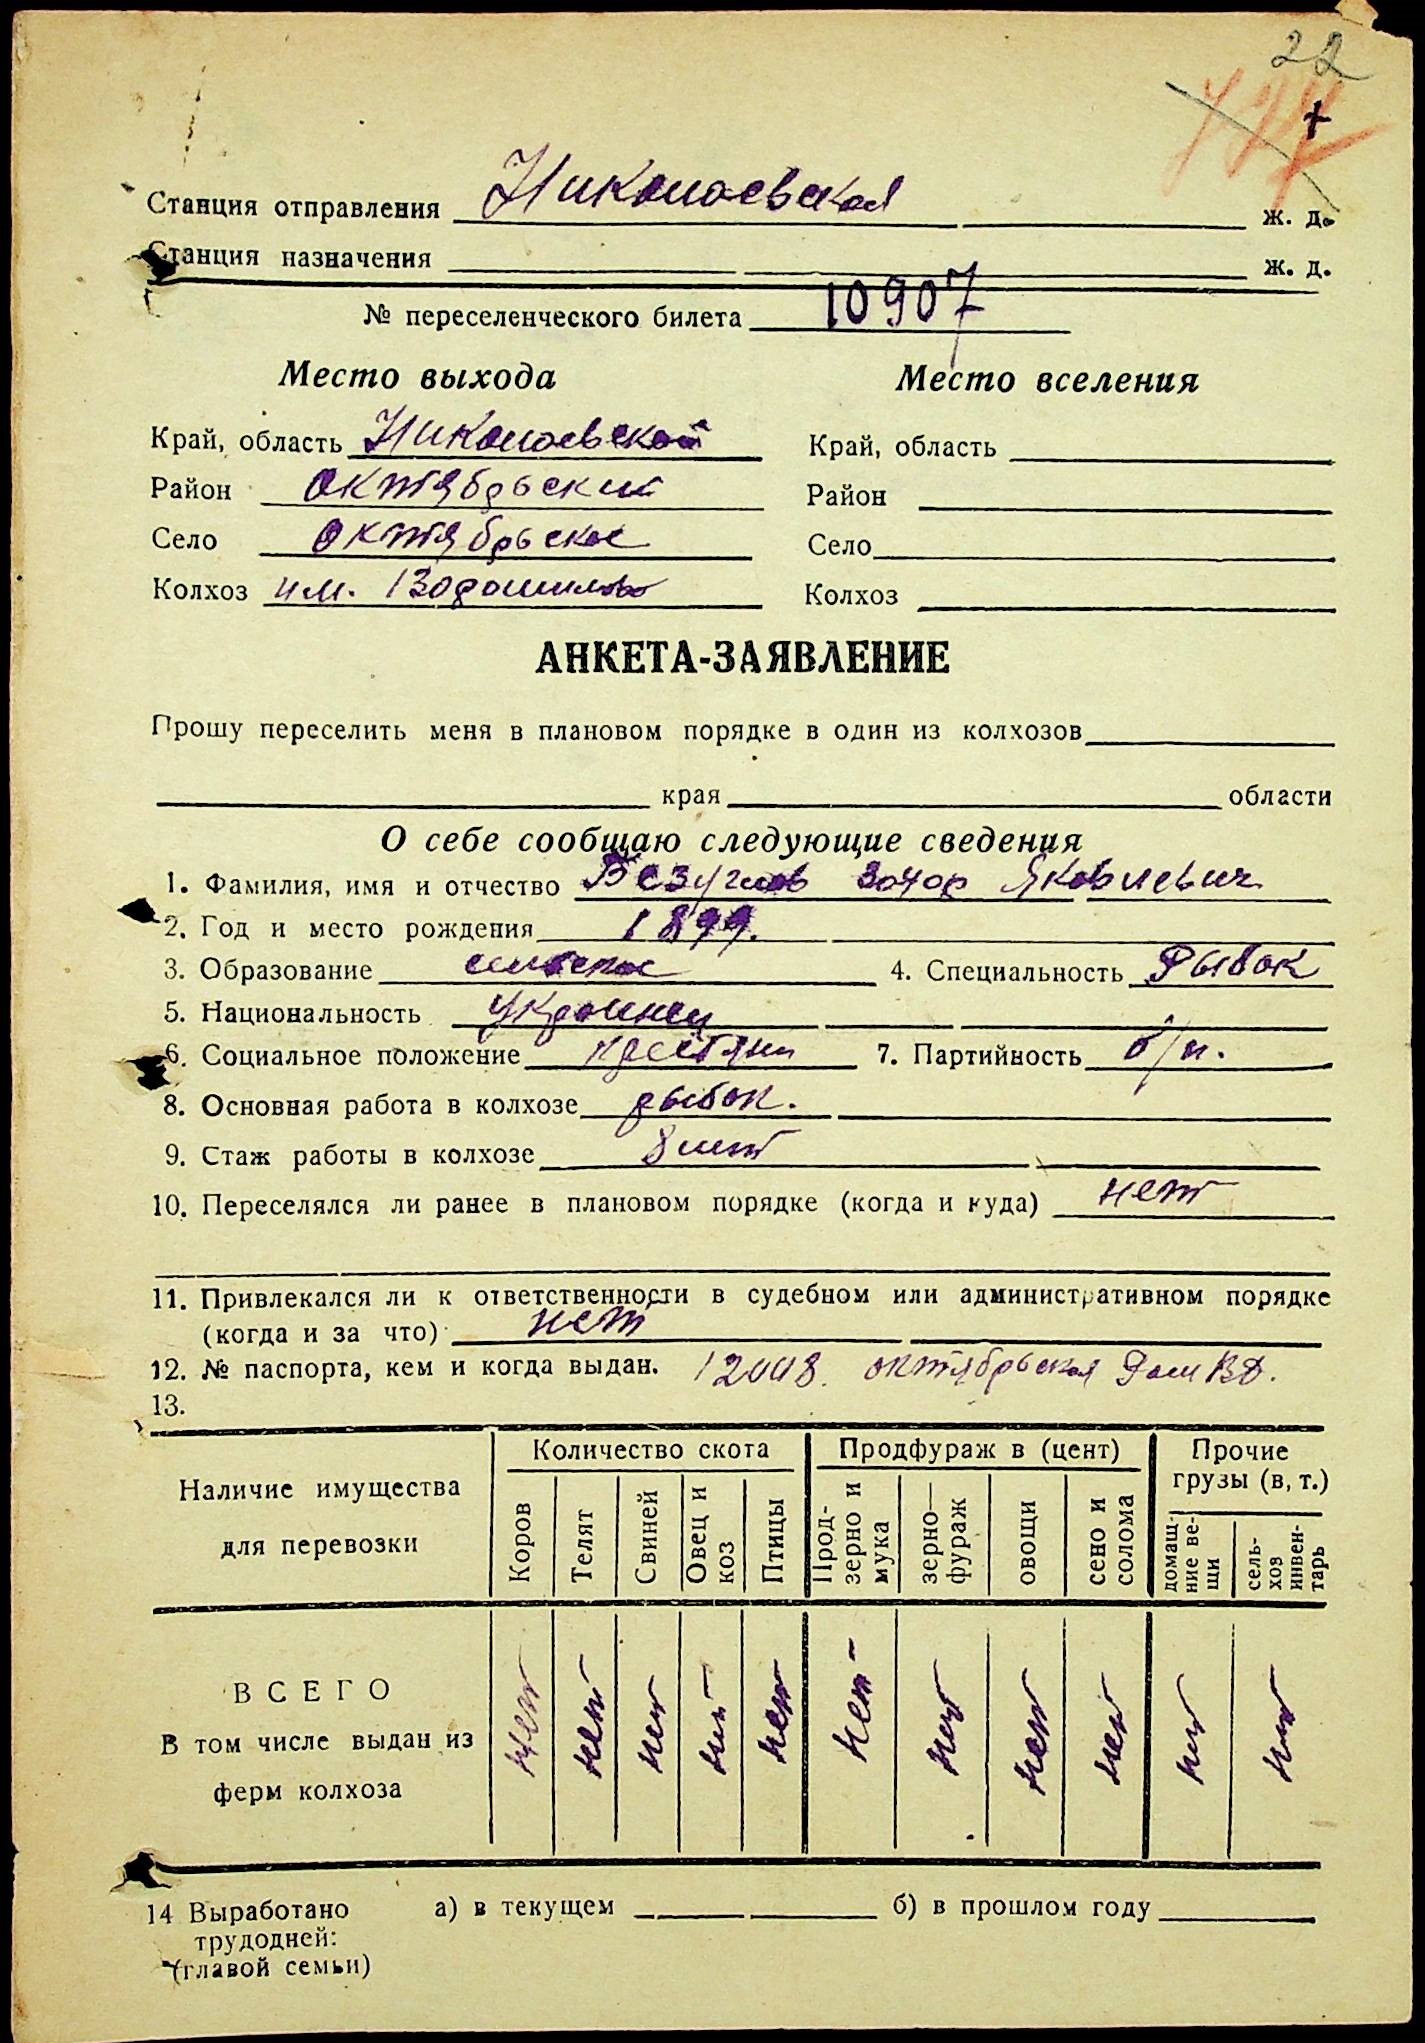 22
Станция отправления Николаевская ж. д.
Станция назначения ж. д.
№ переселенческого билета 10907
Место выхода Место вселения
Край, область Николаевской Край, область
Район Октябрьский Район
Село Октябрьское Село
Колхоз им. Ворошилова Колхоз
АНКЕТА-ЗАЯВЛЕНИЕ
Прошу переселить меня в плановом порядке в один из колхозов
края области
О себе сообщаю следующие сведения
1. Фамилия, имя и отчество Безуглов Захар Яковлевич
2. Год и место рождения 1899.
3. Образование 4. Специальность Рыбак
5. Национальность Украинец
6. Социальное положение крестянин 7. Партийность б/п.
8. Основная работа в колхозе рыбак.
9. Стаж работы в колхозе 8 лет
10. Переселялся ли ранее в плановом порядке (когда и куда) нет
11. Привлекался ли к ответственности в судебном или административном порядке
(когда и за что) нет
12. № паспорта, кем и когда выдан. октябрьская
13.
Наличие имущества для перевозки
Количество скота Продфураж в (цент) Прочие грузы (в, т.)
Коров Телят Свиней Овец и коз Птицы Прод-зерно и мука зерно—фураж овощи сено и солома домащ-ние ве-щи сель-хоз инвен-тарь
ВСЕГО
В том числе выдан из
ферм колхоза
нет нет нет нет нет нет нет нет нет нет нет
14 Выработано а) в текущем б) в прошлом году
трудодней:
(главой семьи)